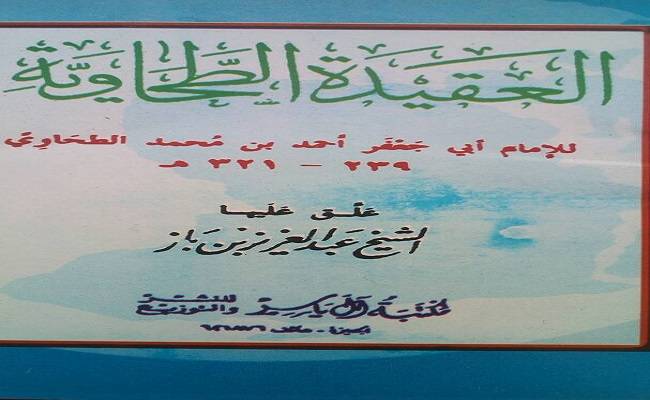 العَقِيْدَةُ الطَّحَاوِيَّةِ
للإمام أبي جَعْفَر أحمد بن مُحمد الطحَاوِي
٢٣٩ - ٣٢١ هـ
عَلَّقَ عَلَيهَا
الشيخ عَبد العزيز بن بَاز
مكتبة للنشر والتوزيع